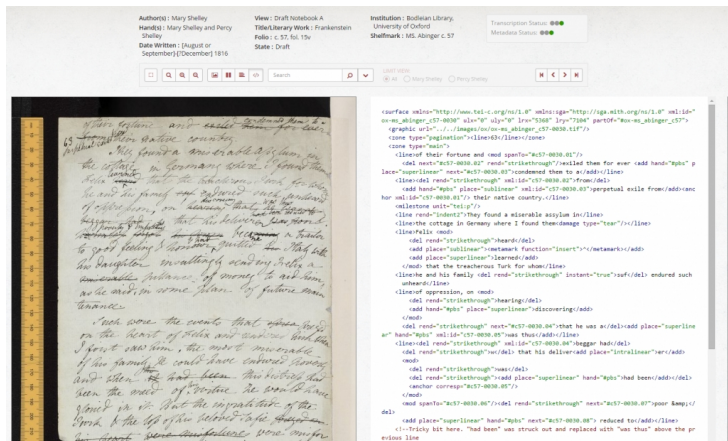 Author(s) : Mary Shelley
Hand(s) : Mary Shelley and Percy
Shelley
Date Written : [August or
September]-[?December] 1816
View : Draft Notebook A
Title/Literary Work : Frankenstein
Folio : c. 57, fol. 15v
State : Draft
Institution : Bodleian Library,
University of Oxford
Shelfmark : MS. Abinger c. 57
Transcription Status:
Metadata Status:
Search
LIMIT VIEW
All Mary Shelley Percy Shelley
63
their native country.
They found a miserable asylum in
the cottage in Germany where I found them
Felix
he and his family endured such
of oppression, on
that his deliverer
to good feeling & honour, quitted Italy with
his daughter insultingly sending Felix a
pittance of money to aid him
as he said, in some plan of future main
tenance.
Such were the events that
on the heart of Felix and
I first saw him, the most miserable
of his family. He could have endured poverty
and when this distress had
been the meed of his virtue, he would have
gloried in it. But the ingratitude of the
Turk & the loss of his beloved Safie
his heart were misfor
<surface xmlns="http://www.tei-c.org/ns/1.0" xmlns:sga="http://sga.mith.org/ns/1.0" xml:id="
ox-ms_abinger_c57-0030" ulx="0" uly="0" lrx="5368" lry="7104" partOf="#ox-ms_abinger_c57">
<graphic url="../../images/ox/ox-ms_abinger_c57-0030.tif"/>
<zone type="pagination"><line>63</line></zone>
<zone type="main">
<line>of their fortune and <mod spanTo="#c57-0030.01"/>
<del next="#c57-0030.02" rend="strikethrough"/>exiled them for ever <add hand="#pbs" p
lace="superlinear" next="#c57-0030.03">condemned them to a</add></line>
<line><del rend="strikethrough" xml:id="c57-0030.02">from</del>
<add hand="#pbs" place="sublinear" xml:id="c57-0030.03">perpetual exile from</add><anc
hor xml:id="c57-0030.01"/> their native country.</line>
<milestone unit="tei:p"/>
<line rend="indent2">They found a miserable assylum in</line>
<line>the cottage in Germany where I found them<damage type="tear"/></line>
<line>Felix <mod>
<del rend="strikethrough">heard</del>
<add place="sublinear"><metamark function="insert">^</metamark></add>
<add place="superlinear">learned</add>
</mod> that the treacherous Turk for whom</line>
<line>he and his family <del rend="strikethrough" instant="true">suf</del> endured such
unheard</line>
<line>of oppression, on <mod>
<del rend="strikethrough">hearing</del>
<add place="superlinear">discovering</add>
</mod>
<del rend="strikethrough" next="#c57-0030.04">that he was a</del><add place="superline
ar" hand="#pbs" xml:id="c57-0030.05">was thus</add></line>
<line><del rend="strikethrough" xml:id="c57-0030.04">beggar had</del>
<del rend="strikethrough">w</del> that his deliver<add place="intralinear">er</add>
<mod>
<del rend="strikethrough">was</del>
<del rend="strikethrough"><add place="superlinear" hand="#pbs">had been</add></del>
<anchor corresp="#c57-0030.05"/>
</mod>
<mod spanTo="#c57-0030.06"/><del rend="strikethrough" next="#c57-0030.07">poor &amp;</
del>
<add place="superlinear" hand="#pbs" next="#c57-0030.08"> reduced to</add></line>
<!--Tricky bit here. "had been" was struck out and replaced with "was thus" above the pr
evious line